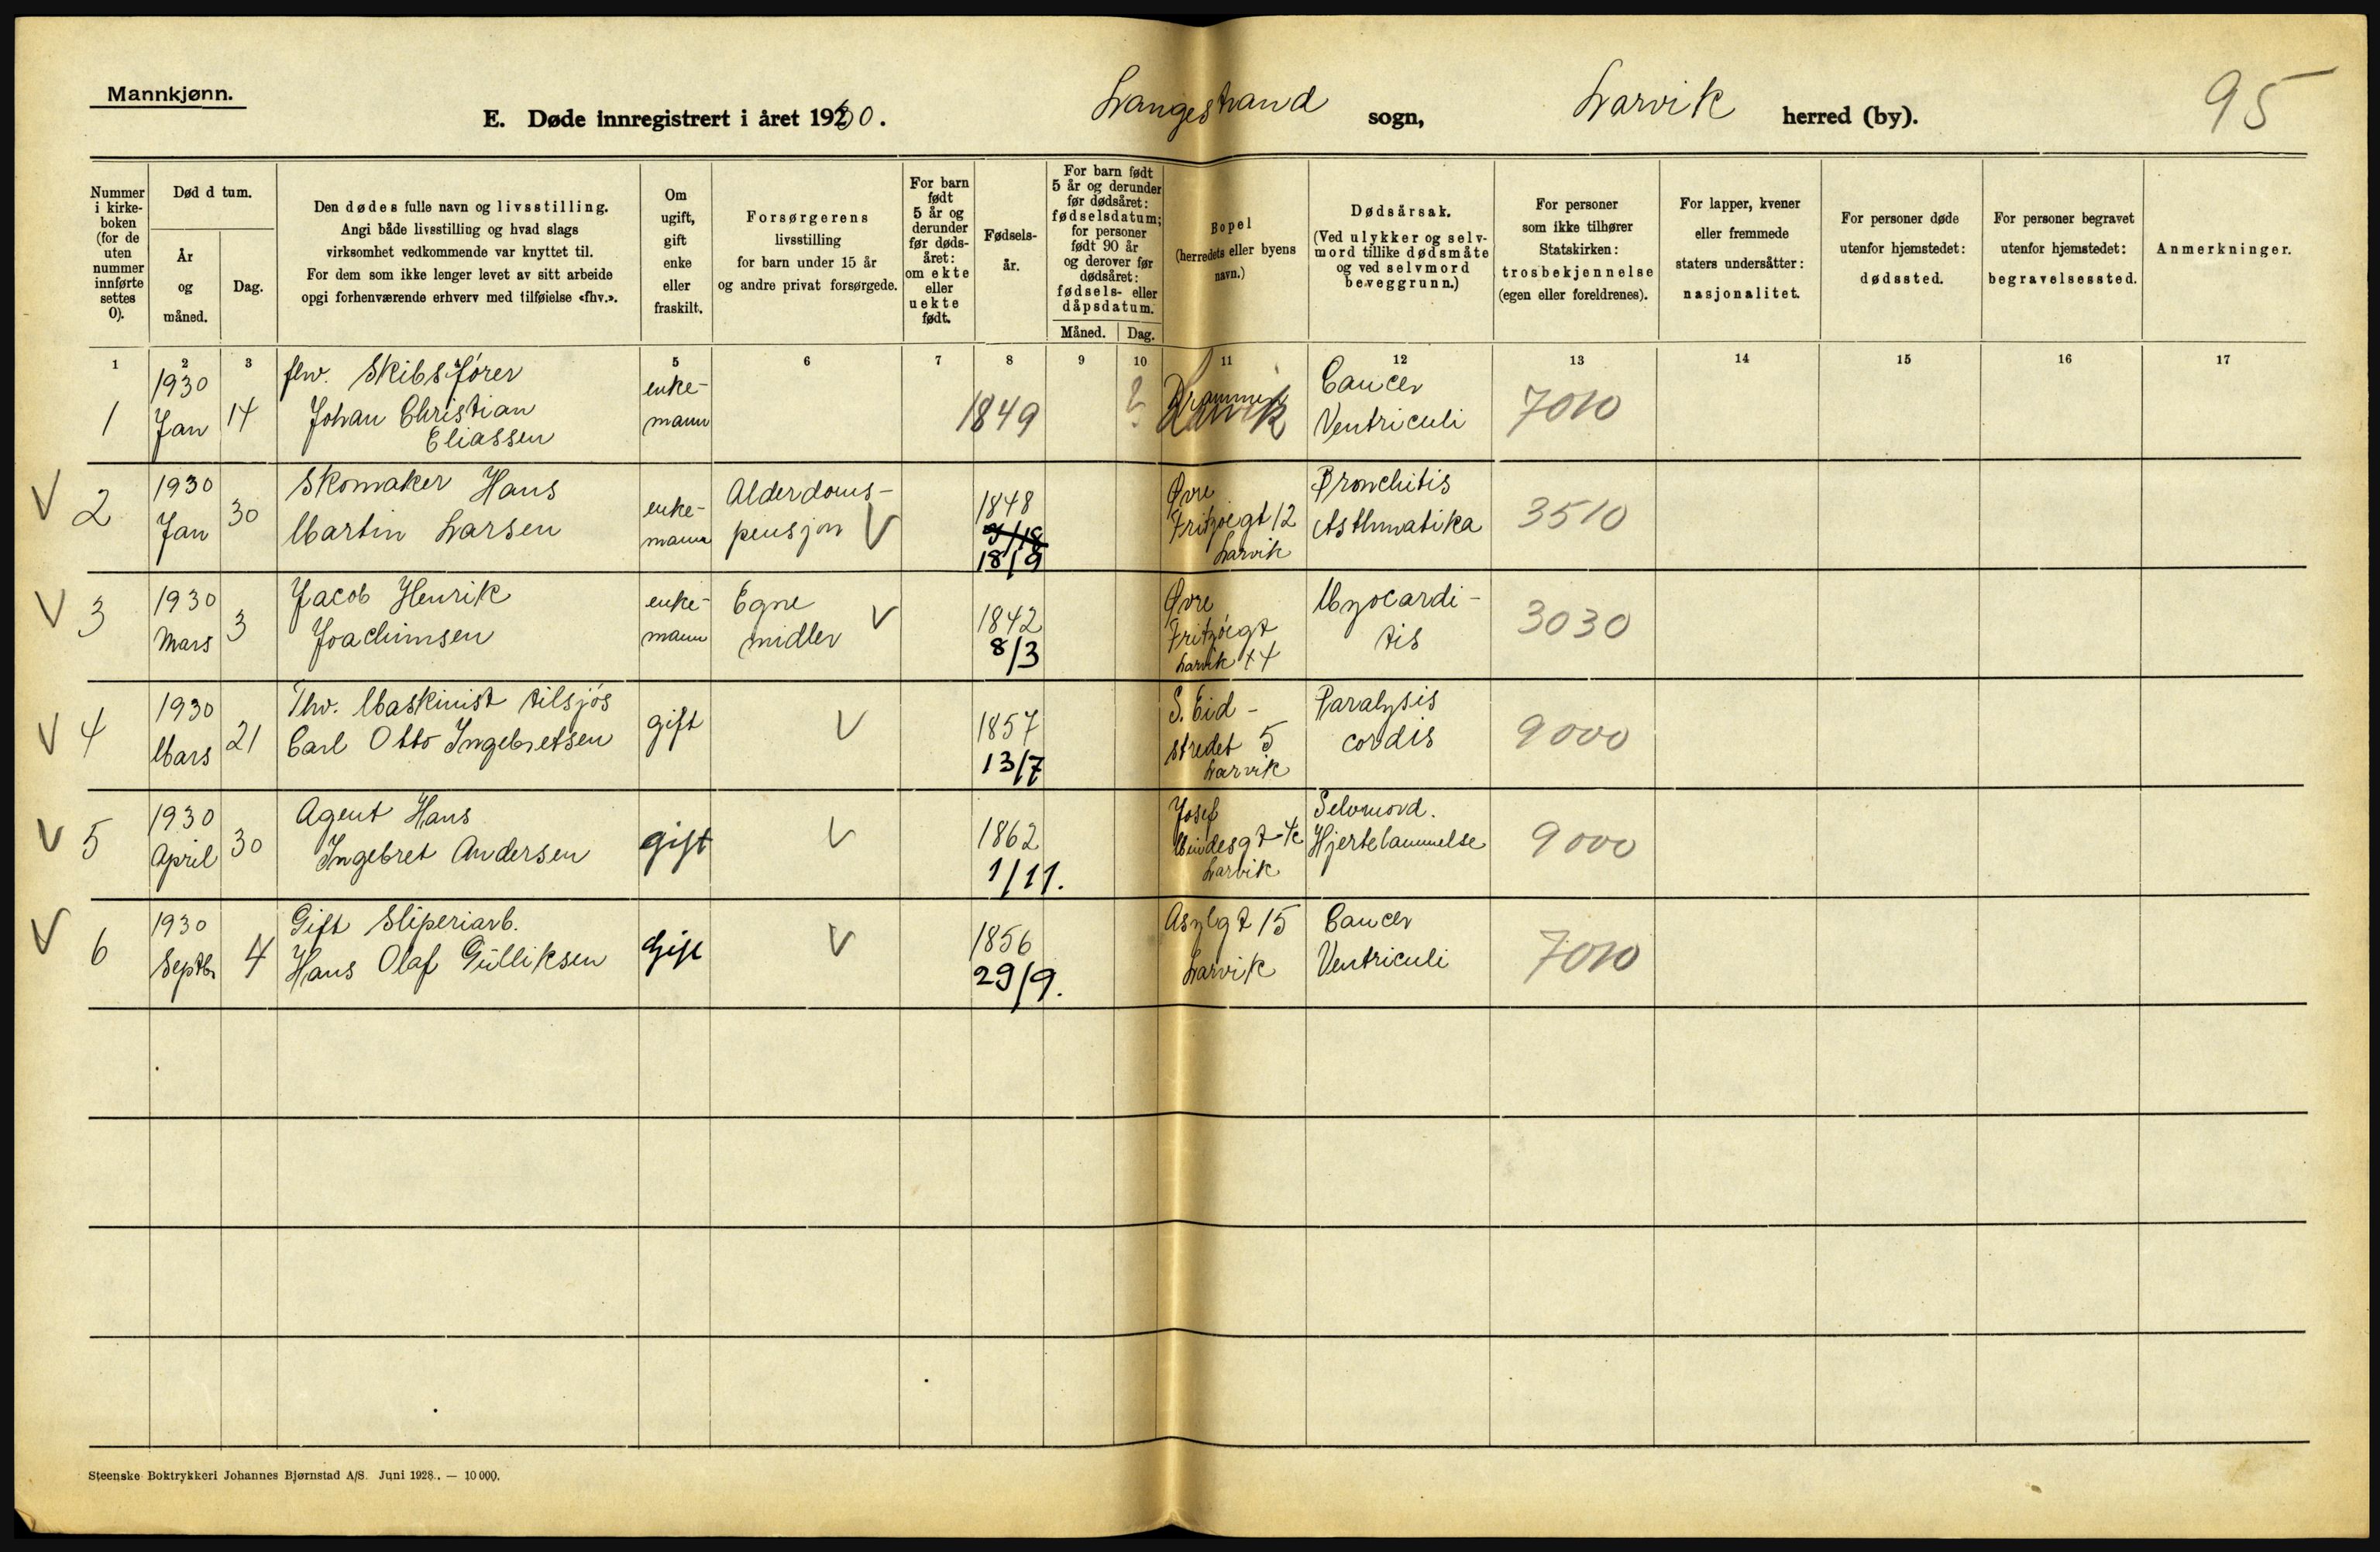 Mannkjønn.
E. Døde innregistrert i året 1930.
Langestrand sogn,
Larvik herred (by).
95
Nummer i kirke-boken (for de uten nummer innførte settes 0).
Død d tum.
År og måned.
Dag.
Den dødes fulle navn og livsstilling.
Angi både livsstilling og hvad slags
virksomhet vedkommende var knyttet til.
For dem som ikke lenger levet av sitt arbeide
opgi forhenværende erhverv med tilføielse «fhv.».
Om ugift, gift enke eller fraskilt.
Forsørgerens
livsstilling
for barn under 15 år
og andre privat forsørgede.
For barn født 5 år og derunder før døds-året: om ekte eller uekte født.
Fødsels-år.
For barn født
5 år og derunder
før dødsåret:
fødselsdatum;
for personer
født 90 år
og derover før
dødsåret:
fødsels- eller
dåpsdatum.
Måned.
Dag.
Bopel
(herredets eller byens
navn.)
Dødsårsak.
(Ved ulykker og selv-
mord tillike dødsmåte
og ved selvmord
beveggrunn.)
For personer
som ikke tilhører
Statskirken:
trosbekjennelse
(egen eller foreldrenes).
For lapper, kvener
eller fremmede
staters undersåtter:
nasjonalitet.
For personer døde
utenfor hjemstedet:
dødssted.
For personer begravet
utenfor hjemstedet:
begravelsessted.
Anmerkninger.
1 2 3 5 6 7 8 9 10 11 12 13 14 15 16 17
1 1930 Jan 14
fhv. Skibsfører
Johan Christian
Eliassen
enke-
mann
1849
?
Larvik
Cancer
Ventriculi
7010
V 2 1930 Jan 30
Skomaker Hans
Martin Larsen
enke-
mann
Alderdoms-
pensjon V
1848
18/9
Øvre
Fritzøegt 12
Larvik
Bronchitis
Asthmatika
3510
V 3 1930 Mars 3
Jacob Henrik
Joachimsen
enke-
mann
Egne
midler V
1842
8/3
Øvre
Fritzöegt
Larvik 44
Myocardi-
tis
3030
V 4 1930 Mars 21
Fhv. Maskinist tilsjøs
Carl Otto Ingebretsen
gift
V
1857
13/7
S. Eid-
stredet 5
Larvik
Paralysis
cordis
9000
V 5 1930 April 30
Agent Hans
Ingebret Andersen
gift
V
1862
1/11.
Josef
Mindesgt
Larvik
Selvmord.
Hjertelammelse
9000
V 6 1930 Septbr 4
Gift Sliperiarb.
Hans Olaf Gülliksen
Gift
V
1856
29/9.
Asylgt 15
Larvik
Cancer
Ventriculi
7010
Steenske Boktrykkeri Johannes Bjørnstad A/S. Juni 1928. — 10 000.